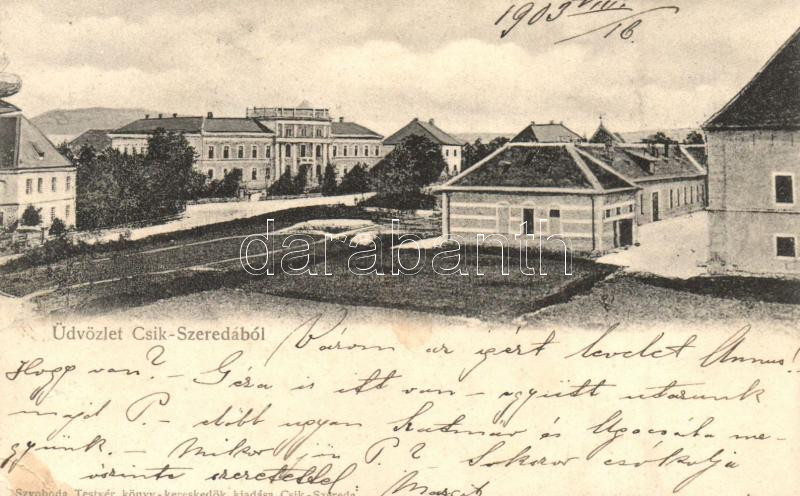 1903 VIII/16
darabanth
Üdvözlet Csik-Szeredából
Várom az igért levelet Annus!
Hogy van? - Géza is itt van - együtt utazunk
majd P. - előbb ugyan Szatmár és Ugocsába me-
gyünk. - Mikor jön P.? - Sokszor csókolja
őszinte szeretettel Margit
Szvoboda Testvér. könyv-kereskedők kiadása Csik-Szereda